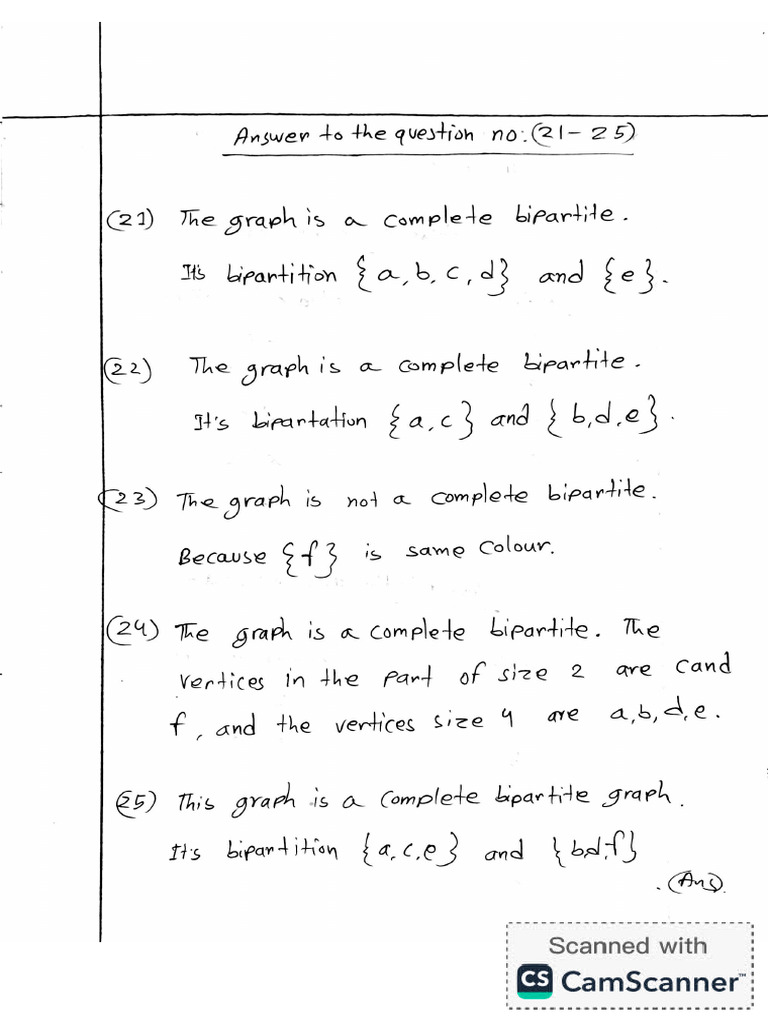 Answer to the question no:(21-25)
(21) The graph is a complete bipartite.
It's bipartition {a,b,c,d} and {e}.
(22) The graph is a complete bipartite.
It's bipartation {a,c} and {b,d,e}.
(23) The graph is not a complete bipartite.
Because {f} is same colour.
(24) The graph is a complete bipartite. The
vertices in the part of size 2 are c and
f, and the vertices size 4 are a,b,d,e.
(25) This graph is a complete bipartite graph.
It's bipartition {a,c,e} and {b,d,f}
.(Ans).
Scanned with
CS CamScanner™